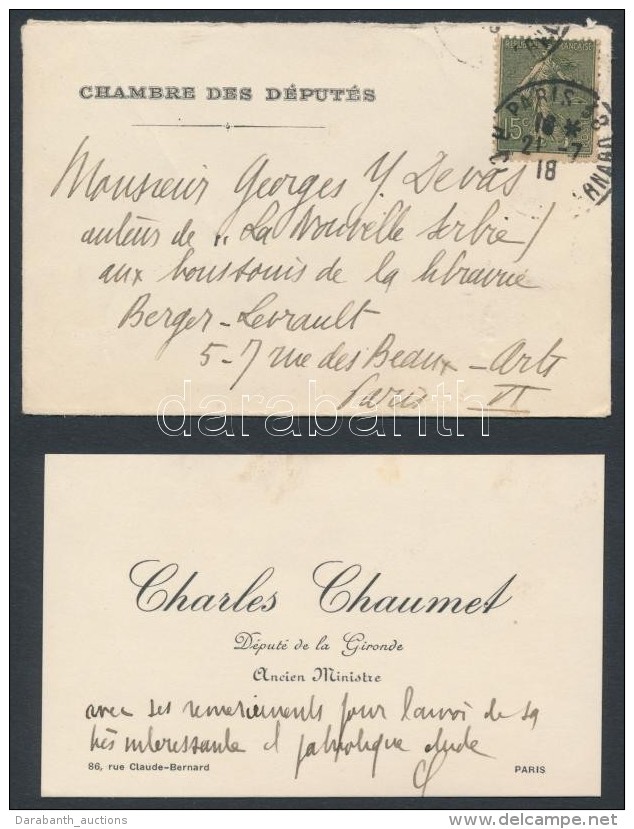 CHAMBRE DES DÉPUTÉS
REPUBLIQUE FRANÇAISE
15c
PARIS
18 *
21 - 7
18
Monsieur Georges Y. Devas
auteur de "La Nouvelle Serbie"
aux bons soins de la librairie
Berger-Levrault
5-7 rue des Beaux-Arts
Paris VI
darabanth
Charles Chaumet
Député de la Gironde
Ancien Ministre
avec ses remerciements pour l'envoi de sa
très intéressante et patriotique étude
86, rue Claude-Bernard PARIS
Darabanth_auctions
delcampe.net